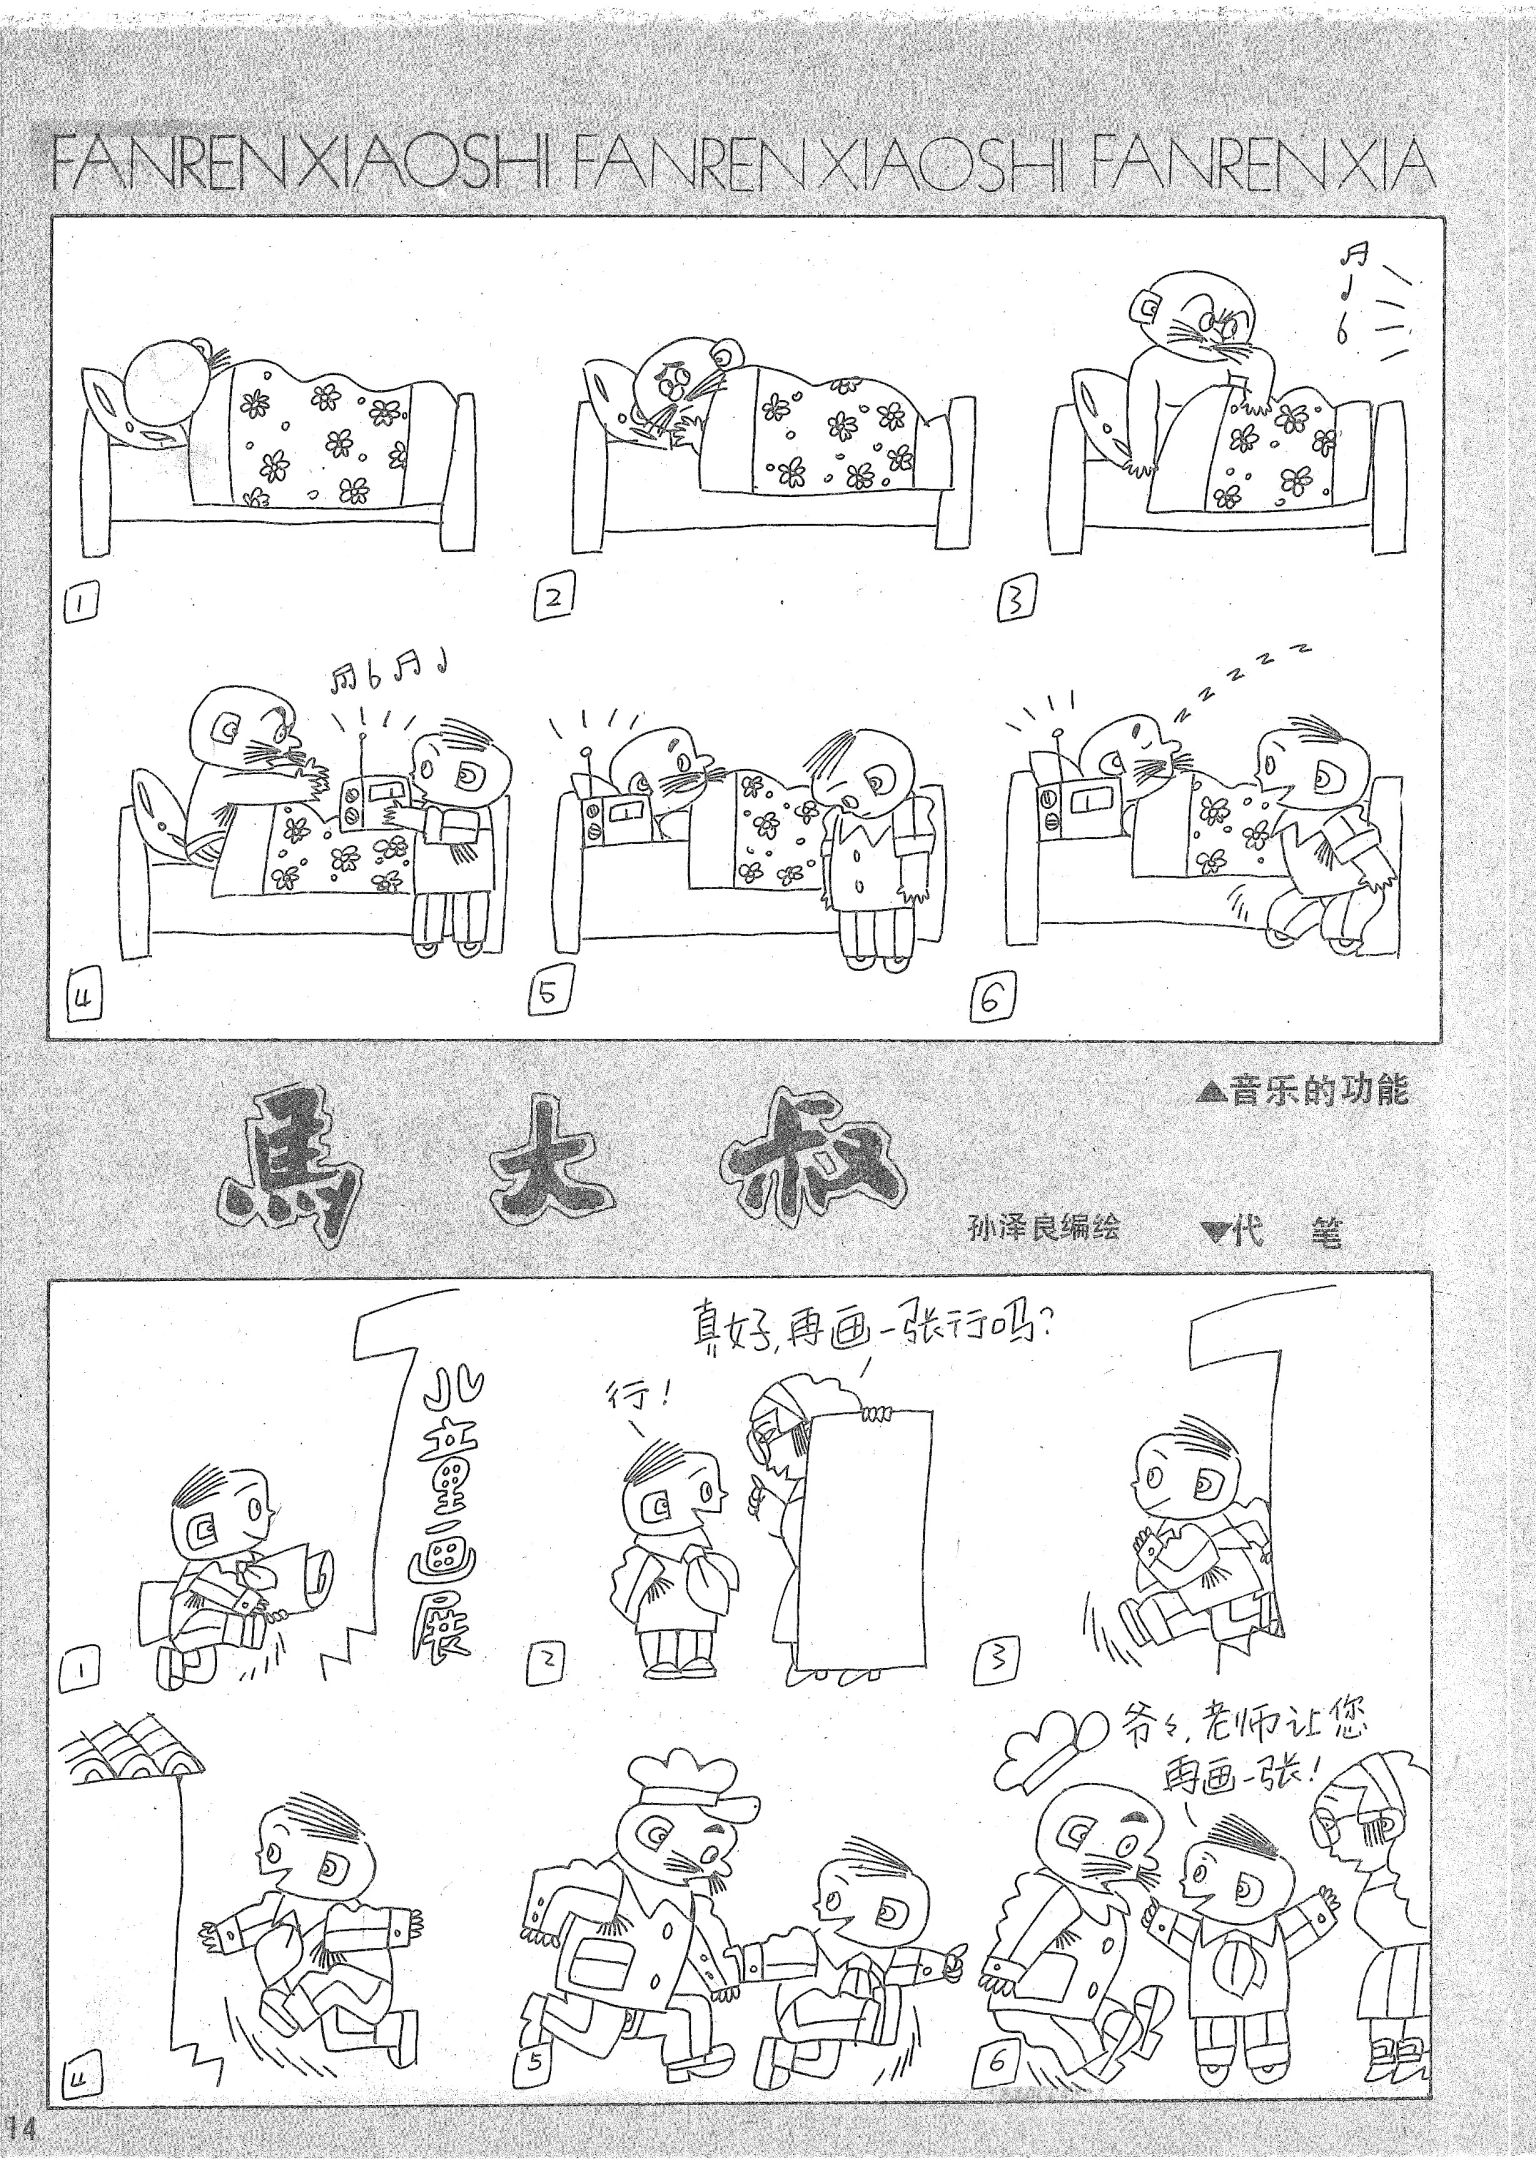 FANRENXIAOSHI FANRENXIAOSHI FANRENXIA
1
2
3
4
5
6
▲音乐的功能
馬大叔
孙泽良编绘
▼代 笔
儿童画展
真好,再画一张行吗?
行!
1
2
3
爷々,老师让您
再画一张!
4
5
6
14